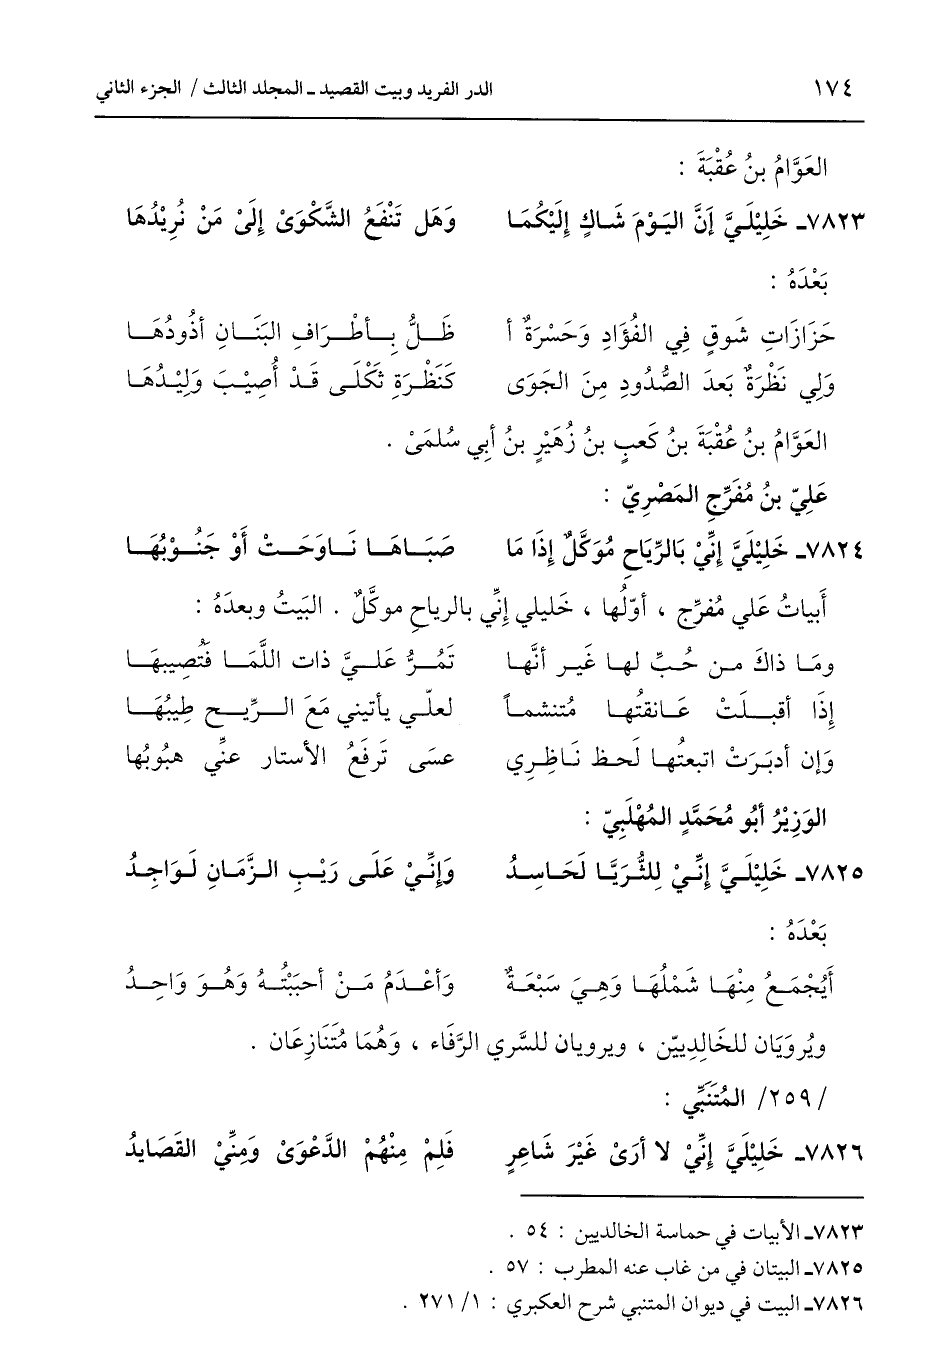 ١٧٤ الدر الفريد وبيت القصيد ـ المجلد الثالث / الجزء الثاني
العَوَّامُ بنُ عُقْبَةَ :
٧٨٢٣ـ خَلِيْلَيَّ إنَّ اليَومَ شَاكٍ إلَيْكُمَا وَهَل تَنْفَعُ الشَّكْوَىْ إلَىْ مَنْ نُرِيْدُهَا
بَعْدَهُ :
حَزَازَاتِ شَوقٍ فِي الفُؤَادِ وَحَسْرَةٌ أ ظَلُّ بِأطْرَافِ البَنَانِ أذُودُهَا
وَلِي نَظْرَةٌ بَعدَ الصُّدُودِ مِنَ الجَوَى كَنَظْرَةِ ثَكْلَى قَدْ أُصِيْبَ وَلِيْدُهَا
العَوَّامُ بنُ عُقْبَةَ بنُ كَعبٍ بنُ زُهَيْرٍ بنُ أبي سُلمَىْ .
عَلِيّ بنُ مُفَرِّجِ المَصْرِيّ :
٧٨٢٤ـ خَلِيْلَيَّ إنِّيْ بَالرِّيَاحِ مُوَكَّلٌ إذَا مَا صَبَاهَا نَاوَحَتْ أَوْ جَنُوْبُهَا
أبيَاتُ عَلي مُفرِّج ، أوّلُها ، خَليلي إنِّي بالرياحِ موكَّلٌ . البَيتُ وبعدَهُ :
ومَا ذاكَ من حُبِّ لها غَير أنَّها تَمُرُّ عَليَّ ذات اللَّمَا فَتُصِيبهَا
إذَا أقبلَتْ عَانقتُها مُتنشماً لعلّي يأتيني مَعَ الرِّيح طِيبُهَا
وَإن أدبَرَتْ اتبعتُها لَحظ نَاظِري عسَى تَرفَعُ الأستار عنِّي هبُوبُها
الوَزِيْرُ أبُو مُحَمَّدٍ المُهْلَبِيّ :
٧٨٢٥ـ خَلِيْلَيَّ إنِّيْ لِلثُّرَيَّا لَحَاسِدُ وَإنِّيْ عَلَى رَيْبِ الزَّمَانِ لَوَاجِدُ
بَعْدَهُ :
أَيُجْمَعُ مِنْهَا شَمْلُهَا وَهِيَ سَبْعَةٌ وَأعْدَمُ مَنْ أحبَبْتُهُ وَهُوَ وَاحِدُ
ويُروَيَان للخَالِدِييّن ، ويرويان للسَّري الرَّفَاء ، وَهُمَا مُتَنَازِعَان .
/ ٢٥٩/ المُتَنَبِّي :
٧٨٢٦ـ خَلِيْلَيَّ إنِّيْ لا أرَىْ غَيْرَ شَاعِرٍ فَلِمْ مِنْهُمْ الدَّعْوَىْ وَمِنِّيْ القَصَايدُ
٧٨٢٣ـ الأبيات في حماسة الخالديين : ٥٤ .
٧٨٢٥ـ البيتان في من غاب عنه المطرب : ٥٧ .
٧٨٢٦ـ البيت في ديوان المتنبي شرح العكبري : ١ / ٢٧١ .